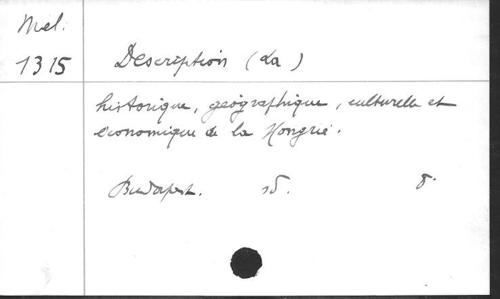 Mel.
1315
Description (La)
historique, géographique, culturelle et
économique de la Hongrie.
Budapest. 15. 8°